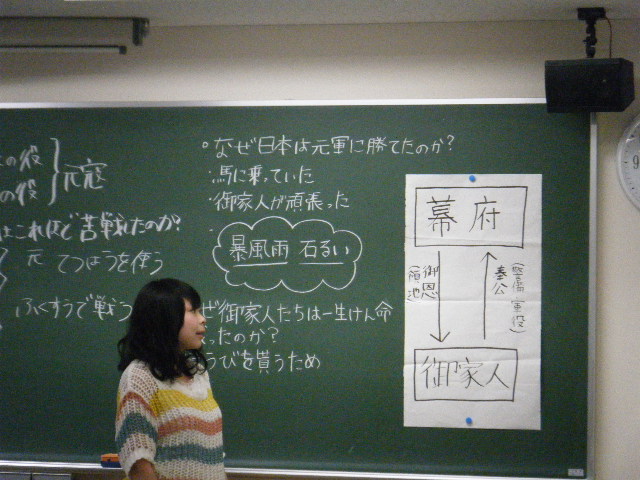 の役
の役
元寇
はこれほど苦戦したのか?
元 てつはうを使う
ふくすうで戦う
・なぜ日本は元軍に勝てたのか?
・馬に乗っていた
・御家人が頑張った
暴風雨 石るい
ぜ御家人たちは一生けん命
ったのか?
うびを貰うため
幕府
御恩
(領地)
奉公
(警備 軍役)
御家人
9